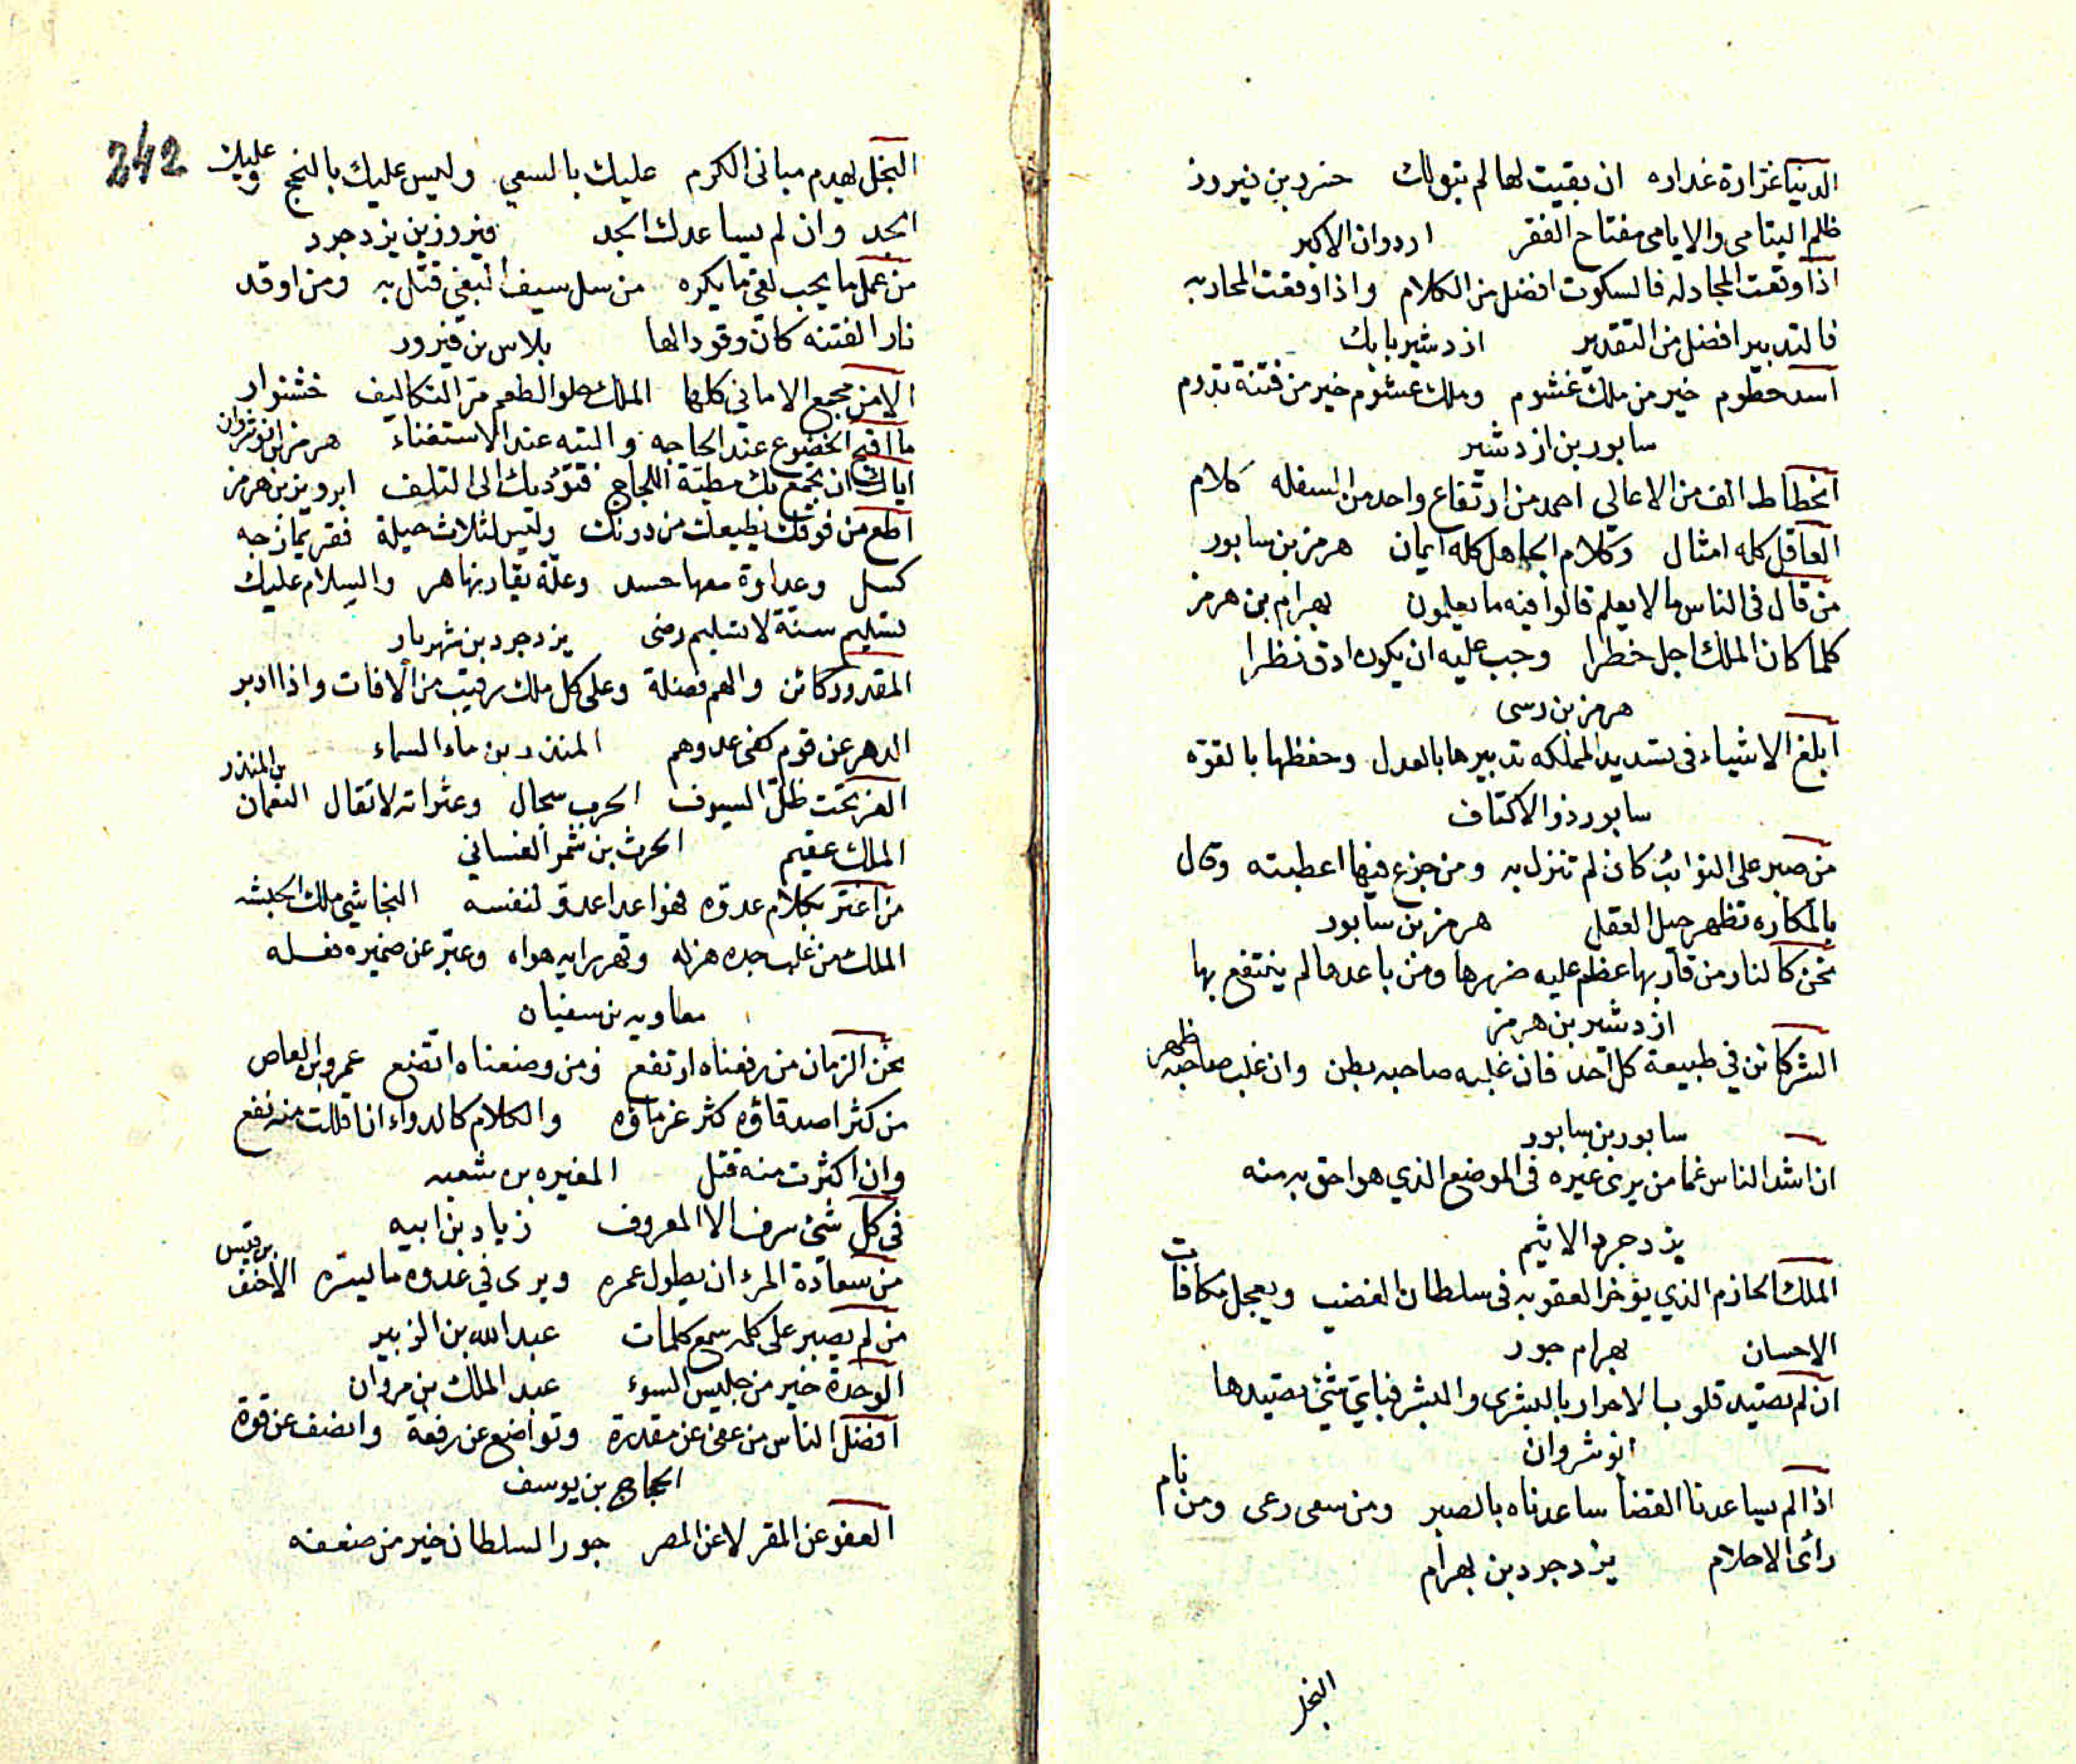 الدنيا غرارة غداره ان بقيت لها لم تبق لك خسرو بن فيروز
ظلم اليتامى والايامى مفتاح الفقر اردوان الاكبر
اذا وقعت المجادله فالسكوت افضل من الكلام واذا وقعت المحاربه
فالتدبير افضل من التقدير ازدشير بابك
اسد حطوم خير من ملك غشوم وملك غشوم خير من فتنة تدوم
سابور بن ازدشير
انحطاط الف من الاعالي احمد من ارتفاع واحد من السفله كلام
العاقل كله امثال وكلام الجاهل كله ايمان هرمز بن سابور
من قال فى الناس ما لا يعلم قالوا فيه ما يعلمون بهرام بن هرمز
كلما كان الملك اجل خطرا وجب عليه ان يكون ادق نظرا
هرمز بن رسى
ابلغ الاشياء فى تسديد المملكه تدبيرها بالعدل وحفظها بالقوة
سابور ذو الاكتاف
من صبر على النوائب كان لم تنزل به ومن جزع فيها اعطبته وقال
بالمكاره تظهر حيل العقل هرمز بن سابور
نحن كالنار من قاربها عظم عليه ضررها ومن باعدها لم ينتفع بها
ازدشير بن هرمز
الشر كائن في طبيعة كل احد فان غلبه صاحبه بطن وان غلب صاحبه ظهر
سابور بن سابور
ان اشد الناس غما من يرى غيره فى الموضع الذي هو احق به منه
يزدجرد الاثيم
الملك الحازم الذي يؤخر العقوبه فى سلطان الغضب ويعجل مكافات
الاحسان بهرام جور
ان لم نصيد قلوب الاحرار بالبشرى والبشر فباي شئ نصيدها
انوشروان
اذا لم يساعدنا القضا ساعدناه بالصبر ومن سعى رعى ومن نام
رأى الاحلام يزدجرد بن بهرام
البخل
242
البخل يهدم مبانى الكرم عليك بالسعي وليس عليك بالنجح وعليك
الجد وان لم يساعدك الجد فيروز بن يزدجرد
من عمل ما يحب لقى ما يكره من سل سيف البغي قتل به ومن اوقد
نار الفتنه كان وقودا لها بلاس بن فيرور
الامن مجمع الاماني كلها الملك حلو الطعم مر التكاليف خشنوار
ما اقبح الخضوع عند الحاجه والتيه عند الاستغناء هرمز بن انوشروان
اياك ان تجمع بك مطية اللجاج فتؤديك الى التلف ابرويز بن هرمز
اطع من فوقك يطيعك من دونك وليس لثلاث حيلة فقر يمازجه
كسل وعداوة معها حسد وعلة يقاربها هرم والسلام عليك
تسليم سنة لا تسليم رضى يزدجرد بن شهريار
المقدور كائن والهم فضلة وعلى كل ملك رقيب من الافات واذا ادبر
الدهر عن قوم كفى عدوهم المنذر بن ماء السماء
العز تحت ظل السيوف الحرب سجال وعثراته لا تقال النعمان بن المنذر
الملك عقيم الحرث بن شمر الغساني
من اغتر بكلام عدوه فهو اعدا عدو لنفسه النجاشي ملك الحبشه
الملك من غلب جده هزله وقهر رايه هواه وعبر عن ضميره فعله
معاويه بن سفيان
نحن الزمان من رفعناه ارتفع ومن وضعناه اتضع عمرو بن العاص
من كثر اصدقاؤه كثر غرماؤه والكلام كالدواء ان اقللت منه نفع
وان اكثرت منه قتل المغيره بن شعبه
فى كل شئ سرف الا المعروف زياد بن ابيه
من سعادة المرء ان يطول عمره ويرى في عدوه ما يسره الاحنف بن قيس
من لم يصبر على كلمه سمع كلمات عبد الله بن الزبير
الوحدة خير من جليس السوء عبد الملك بن مروان
افضل الناس من عفى عن مقدرة وتواضع عن رفعة وانصف عن قوة
الحجاج بن يوسف
العفو عن المقر لا عن المصر جور السلطان خير من ضعفه